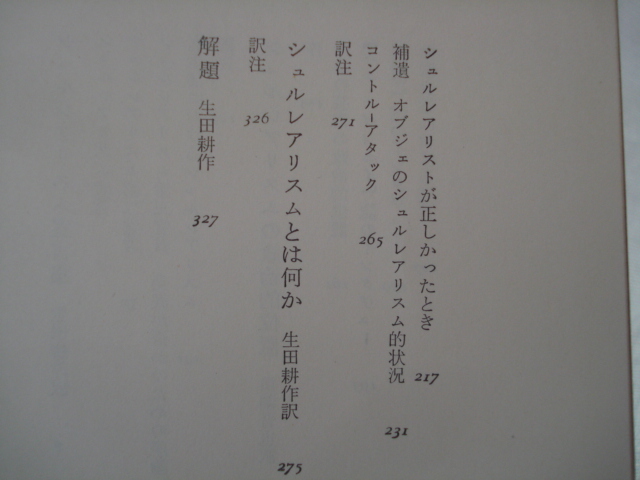 シュルレアリストが正しかったとき 217
補遺 オブジェのシュルレアリスム的状況 231
コントル＝アタック 265
訳注 271
シュルレアリスムとは何か 生田耕作訳 275
訳注 326
解題 生田耕作 327